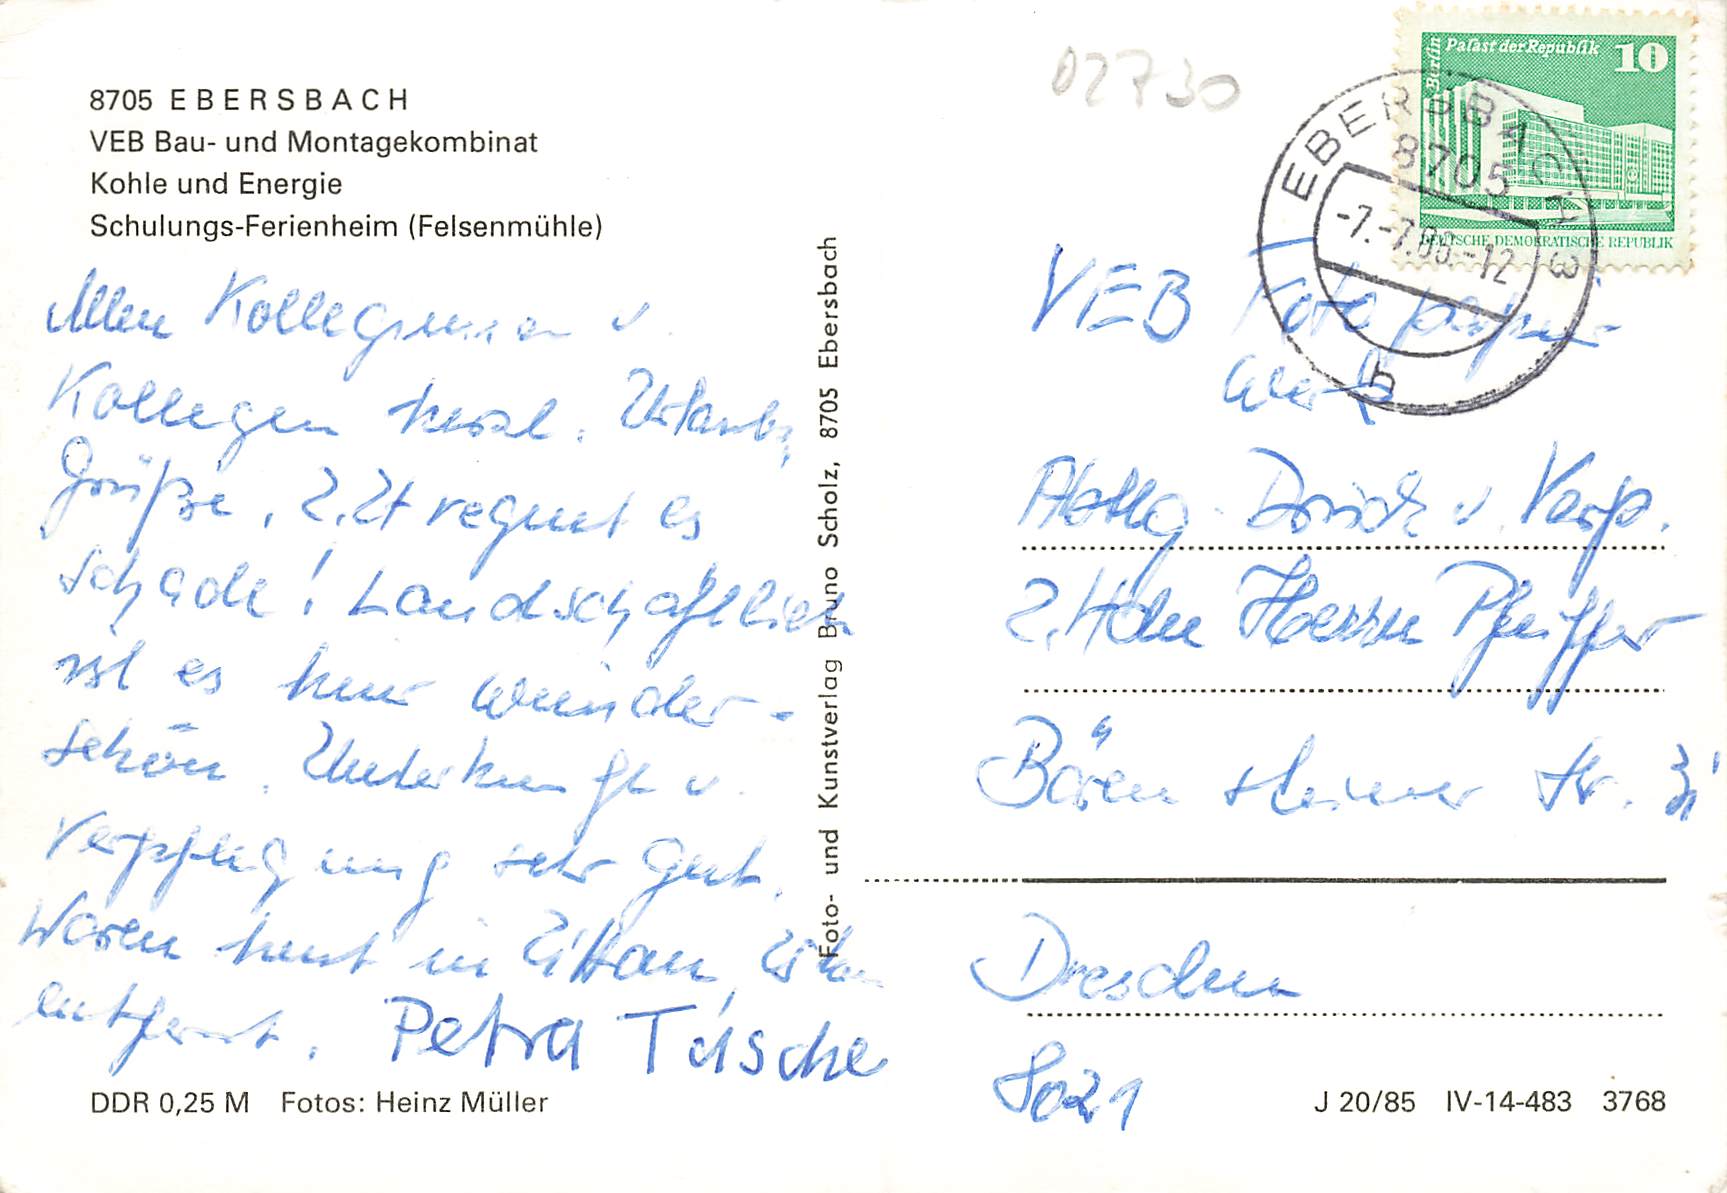 8705 EBERSBACH
VEB Bau- und Montagekombinat
Kohle und Energie
Schulungs-Ferienheim (Felsenmühle)
Allen Kolleginnen u.
Kollegen herzl. Urlaubs
Grüße. Z.Zt regnet es
schade! Landschaftlich
ist es hier wunder-
schön. Unterkunft u.
Verpflegung sehr gut.
Waren heut in Zittau,
entfernt. Petra Tasche
DDR 0,25 M Fotos: Heinz Müller
Foto- und Kunstverlag Bruno Scholz, 8705 Ebersbach
02730
Berlin
Palast der Republik
10
DEUTSCHE DEMOKRATISCHE REPUBLIK
EBERSBACH 3
8705
-7.-7.86.-12
h
VEB Fotopapier-
werk
Abtlg. Druck u. Verp.
z.Hdn Herrn Pfeiffer
Bärensteiner Str.
Dresden
8021
J 20/85 IV-14-483 3768